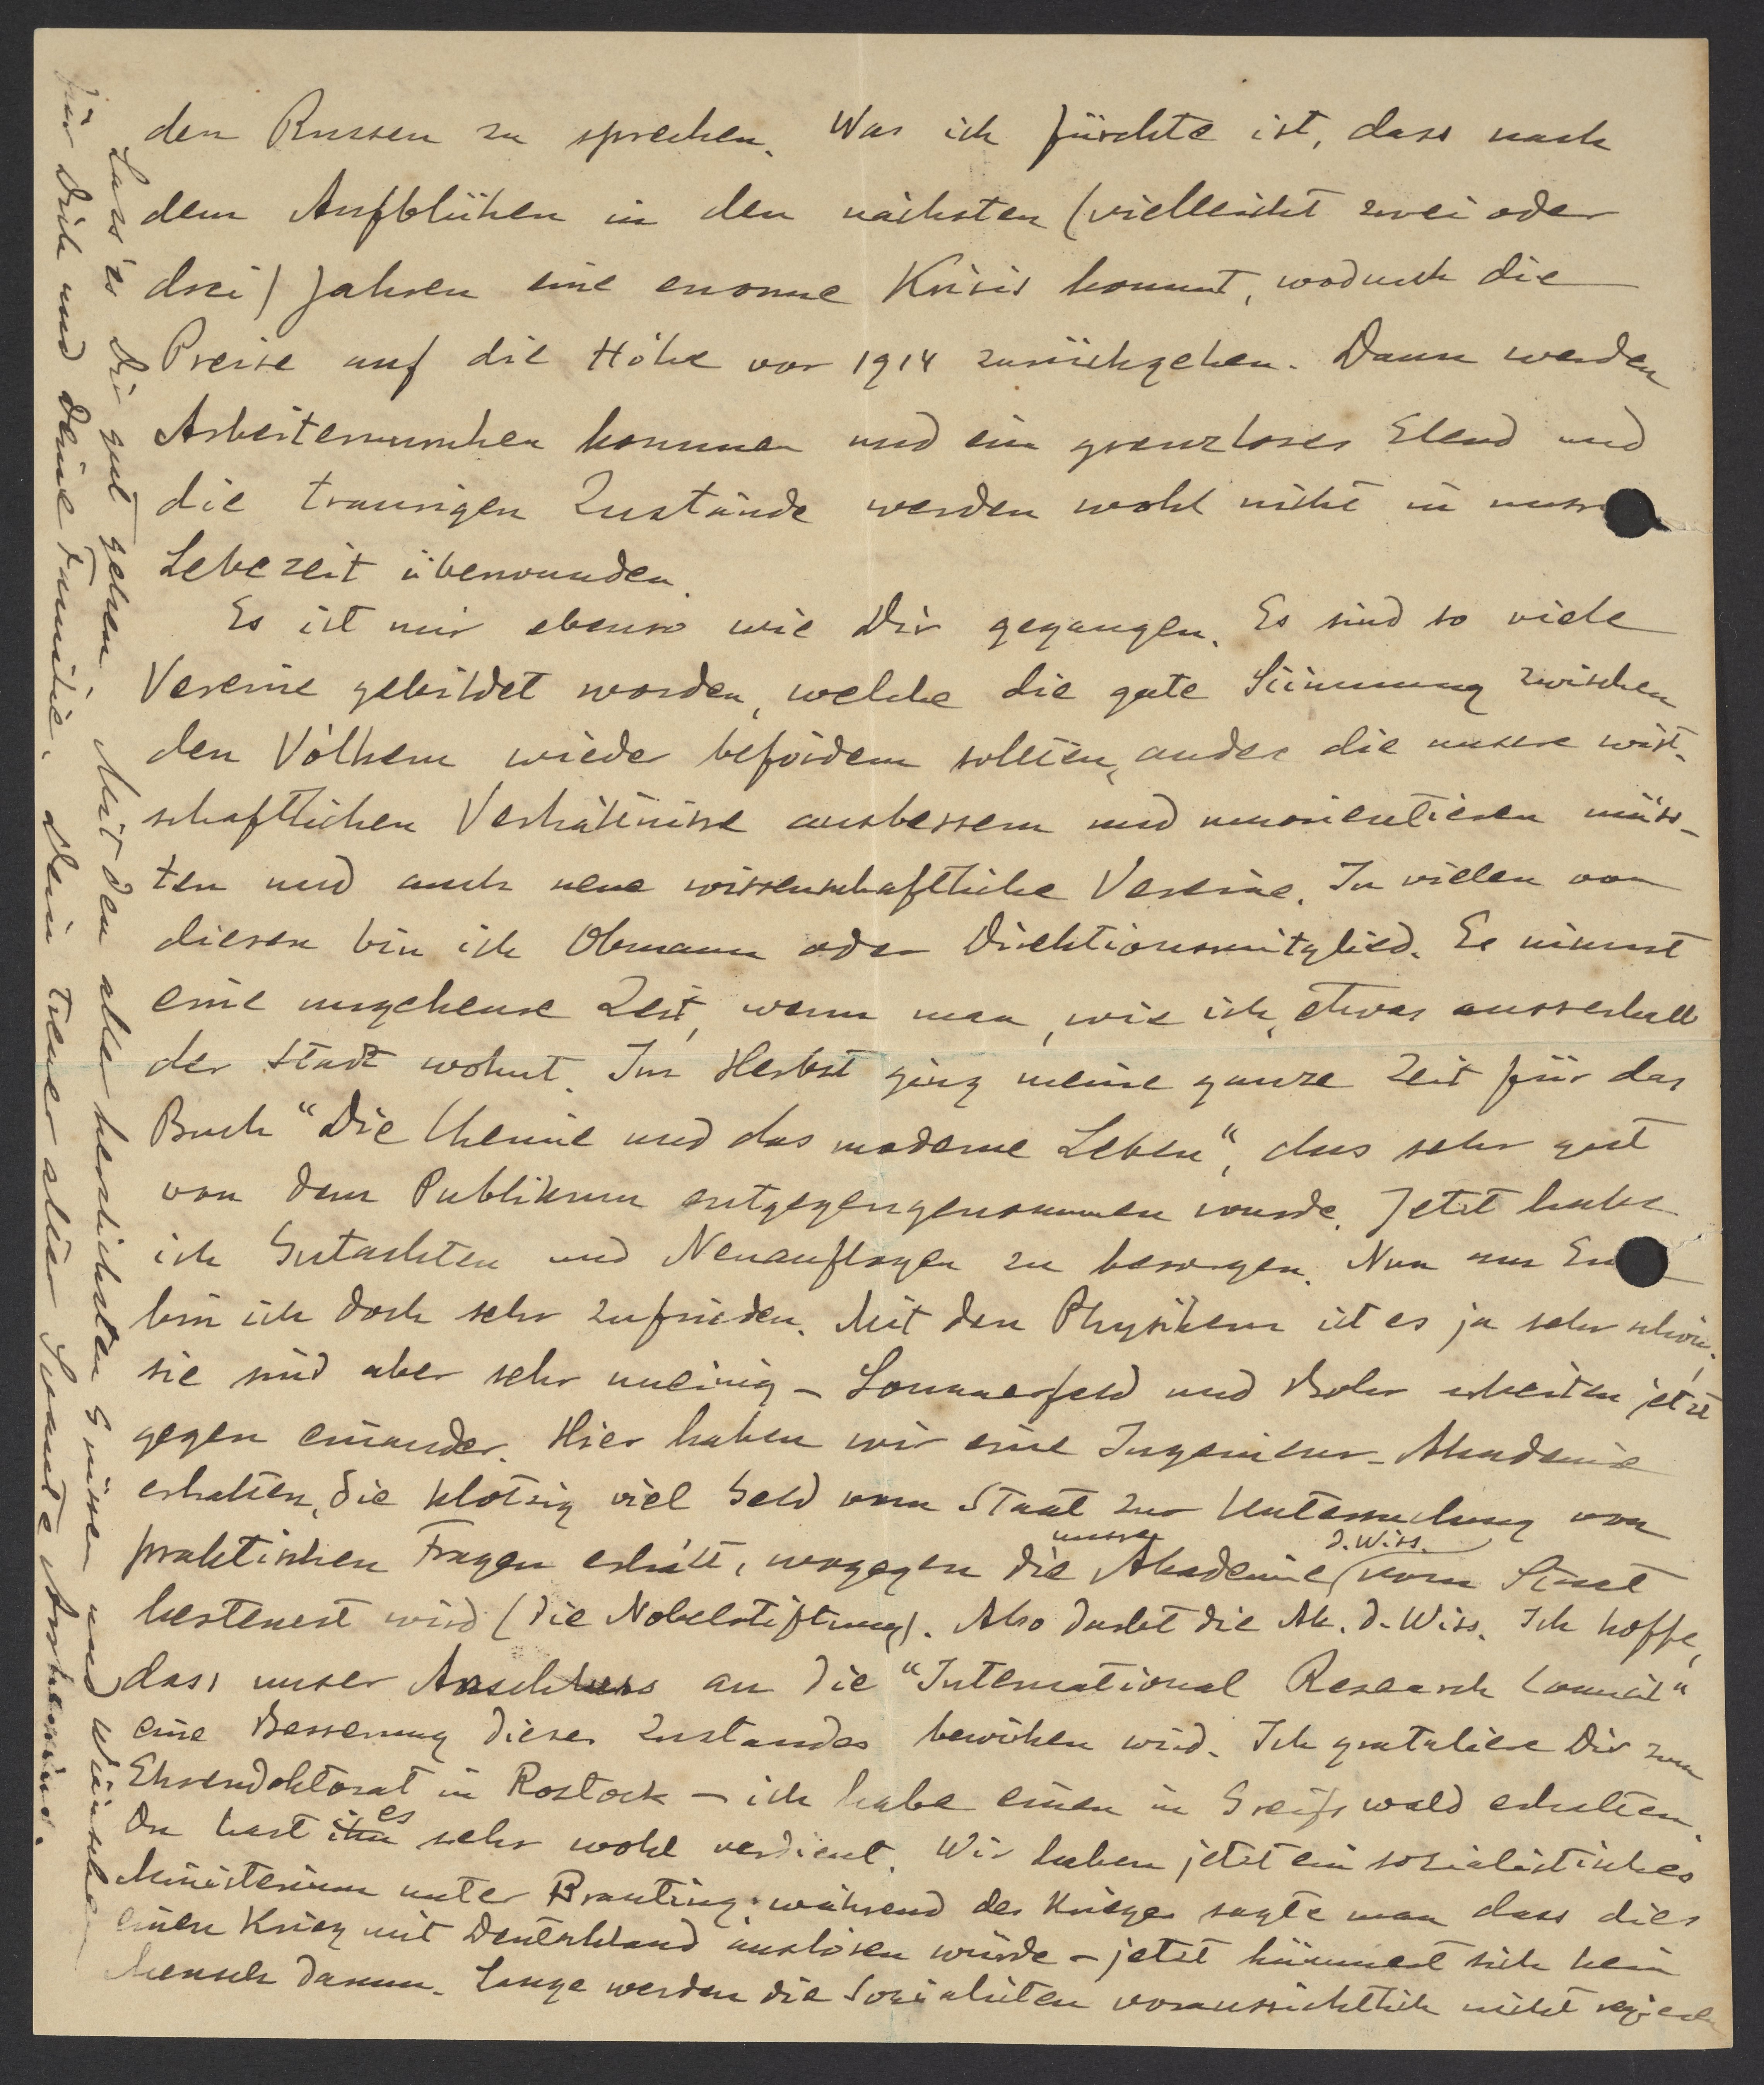 den Russen zu sprechen. Was ich fürchte ist, dass nach
dem Aufblühen in den nächsten (vielleicht zwei oder
drei) Jahren eine enorme Krisis kommt, wodurch die
Preise auf die Höhe vor 1914 zurückgehen. Dann werden
Arbeiterunruhen kommen und ein grenzloses Elend und
die traurigen Zustände werden wohl nicht in unsr
Lebezeit überwunden.
Es ist mir ebenso wie Dir gegangen. Es sind so viele
Vereine gebildet worden, welche die gute Stimmung zwischen
den Völkern wieder befördern sollten, andere die unsere wirt-
schaftlichen Verhältnisse ausbessern und neuorientieren müss-
ten und auch neue wissenschaftliche Vereine. In vielen von
diesen bin ich Obmann oder Direktionsmitglied. Es nimmt
eine ungeheure Zeit, wenn man, wie ich, etwas ausserhalb
der Stadt wohnt. Im Herbst ging meine ganze Zeit für das
Buch "Die Chemie und das moderne Leben", das sehr gut
von dem Publikum entgegengenommen wurde. Jetzt habe
ich Gutachten und Neuauflagen zu besorgen. Nun am En
bin ich doch sehr zufrieden. Mit den Physikern ist es ja sehr schön,
sie sind aber sehr uneinig – Sommerfeld und Bohr arbeiten jetzt
gegen einander. Hier haben wir eine Ingenieur-Akademie
erhalten, die klotzig viel Geld vom Staat zur Untersuchung von
praktischen Fragen erhält, wogegen die unsre Akademie d. Wiss. vom Staat
besteuert wird (die Nobelstiftung). Also darbt die Ak. d. Wiss. Ich hoffe,
dass unser Anschluss an die "International Research Council"
eine Besserung dieses Zustandes bewirken wird. Ich gratuliere Dir zum
Ehrendoktorat in Rostock – ich habe einen in Greifswald erhalten.
Du hast ihn es sehr wohl verdient. Wir haben jetzt ein sozialistisches
Ministerium unter Branting; während des Krieges sagte man dass dies
einen Krieg mit Deutschland auslösen würde – jetzt kümmert sich kein
Mensch darum. Lange werden die Sozialisten voraussichtlich nicht regieren
Lass es Dir gut gehen. Mit den aller herzlichsten Grüssen und Wünschen
für Dich und Deine Familie. Dein treuer alter Svante Arrhenius.